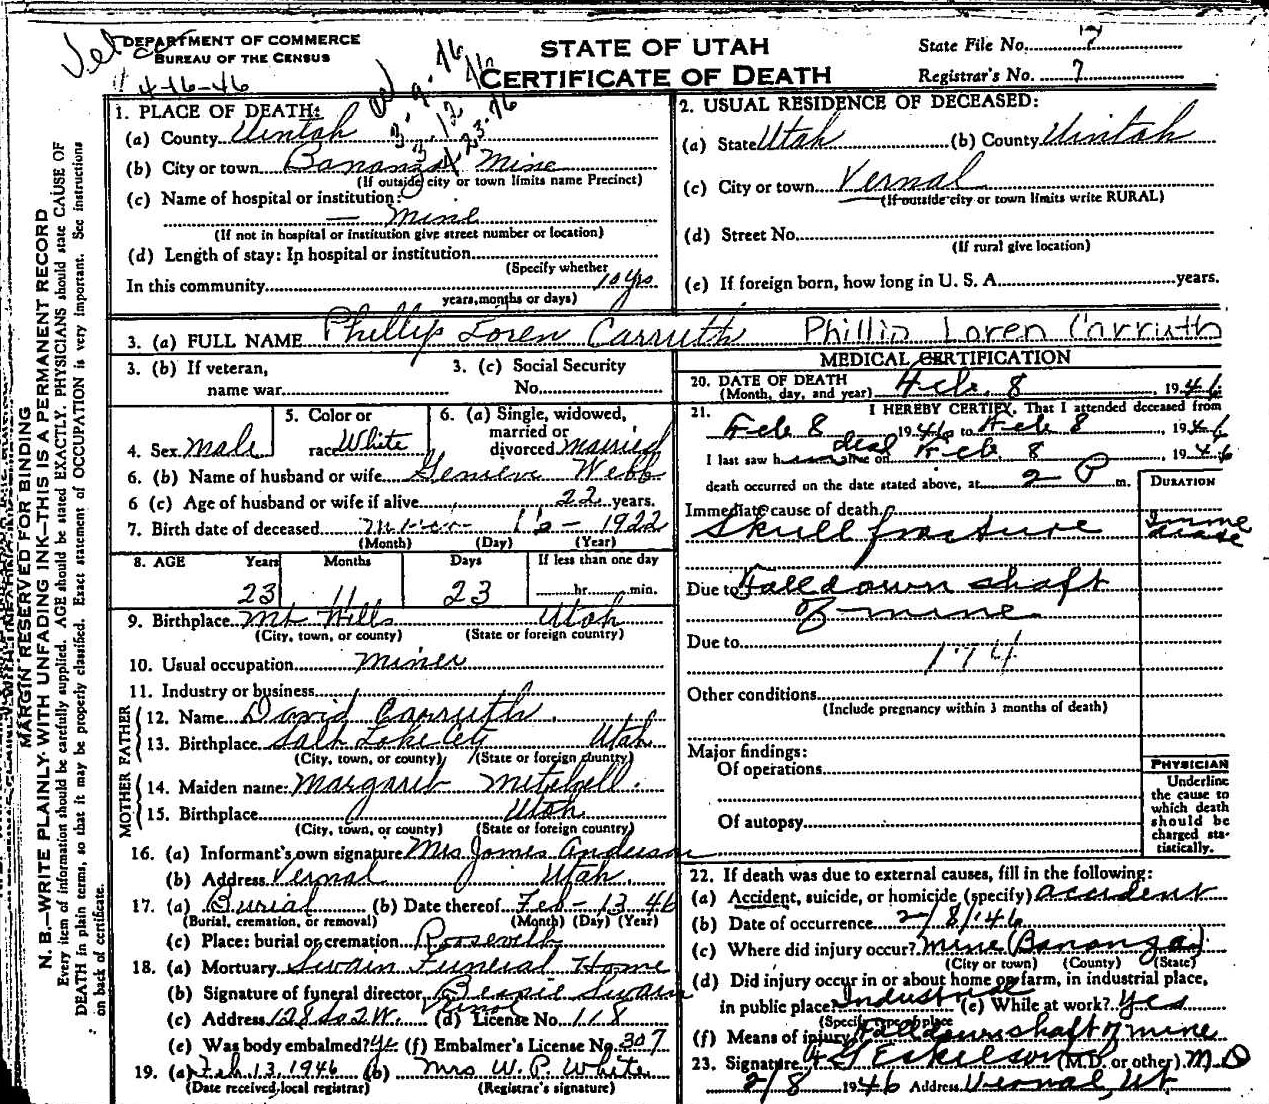 DEPARTMENT OF COMMERCE
BUREAU OF THE CENSUS
4-16-46
STATE OF UTAH
CERTIFICATE OF DEATH
State File No. 7
Registrar's No. 7
MARGIN RESERVED FOR BINDING
N. B.—WRITE PLAINLY WITH UNFADING INK—THIS IS A PERMANENT RECORD
Every item of information should be carefully supplied. AGE should be stated EXACTLY. PHYSICIANS should state CAUSE OF
DEATH in plain terms, so that it may be properly classified. Exact statement of OCCUPATION is very important. See instructions
on back of certificate.
1. PLACE OF DEATH:
(a) County Uintah
(b) City or town Bananza Mine
(If outside city or town limits name Precinct)
(c) Name of hospital or institution:
— Mine
(If not in hospital or institution give street number or location)
(d) Length of stay: In hospital or institution
(Specify whether
In this community 10 yrs.
years, months or days)
2. USUAL RESIDENCE OF DECEASED:
(a) State Utah (b) County Uintah
(c) City or town Vernal
(If outside city or town limits write RURAL)
(d) Street No.
(If rural give location)
(e) If foreign born, how long in U. S. A. years.
3. (a) FULL NAME Phillip Loren Carruth Phillip Loren Carruth
3. (b) If veteran,
name war
3. (c) Social Security
No.
4. Sex male
5. Color or
race White
6. (a) Single, widowed,
married or
divorced married
6. (b) Name of husband or wife Genieve Webb
6 (c) Age of husband or wife if alive 22 years.
7. Birth date of deceased 1922
(Month) (Day) (Year)
8. AGE Years Months Days If less than one day
23 11 23 hr. min.
9. Birthplace Utah
(City, town, or county) (State or foreign country)
10. Usual occupation miner
11. Industry or business
FATHER
12. Name David Carruth
13. Birthplace Salt Lake City Utah
(City, town, or county) (State or foreign country)
MOTHER
14. Maiden name: Margaret Mitchell
15. Birthplace Utah
(City, town, or county) (State or foreign country)
16. (a) Informant's own signature Mrs James Anderson
(b) Address Vernal Utah
17. (a) Burial (b) Date thereof Feb - 13 46
(Burial, cremation, or removal) (Month) (Day) (Year)
(c) Place: burial or cremation Roosevelt
18. (a) Mortuary Swain Funeral Home
(b) Signature of funeral director Bessie Swain
(c) Address 128 So 2 W. Vernal (d) License No. 118
(e) Was body embalmed? Yes (f) Embalmer's License No. 307
19. (a) Feb 13, 1946 (b) Mrs W. P. White
(Date received local registrar) (Registrar's signature)
MEDICAL CERTIFICATION
20. DATE OF DEATH
(Month, day, and year) Feb. 8 1946
21. I HEREBY CERTIFY, That I attended deceased from
Feb 8 1946 to Feb 8, 1946
I last saw h dead alive on Feb 8, 1946
death occurred on the date stated above, at 2 P m.
DURATION
Immediate cause of death
Skull fracture Imme
diate
Due to Fall down shaft
of mine
Due to
174
Other conditions
(Include pregnancy within 3 months of death)
Major findings:
Of operations
Of autopsy
PHYSICIAN
Underline
the cause to
which death
should be
charged sta-
tistically.
22. If death was due to external causes, fill in the following:
(a) Accident, suicide, or homicide (specify) accident
(b) Date of occurrence 2/8/46
(c) Where did injury occur? Mine (Bananza)
(City or town) (County) (State)
(d) Did injury occur in or about home or farm, in industrial place,
in public place? Industrial (e) While at work? Yes
(Specify type of place
(f) Means of injury Fall down shaft of mine
23. Signature Eskelson (M.D. or other) M.D
2/8 1946 Address Vernal, Ut